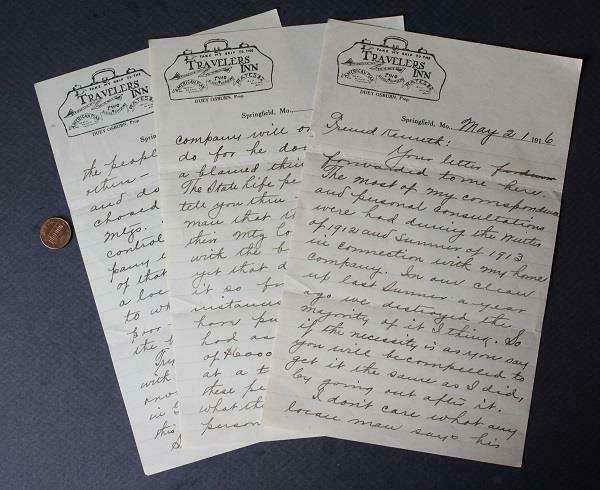 TAKE MY GRIP TO THE
TRAVELERS
INN
AMERICAN PLAN
RATES $2
DUEY OSBURN, Prop.
Sprin
the peopl
other—
and do
chose
Mtgs.
control
pany
of that
a loc
to w
poor
the
Try
with
know
in
this
TAKE MY GRIP TO THE
TRAVELERS
INN
AMERICAN PLAN
RATES $2
DUEY OSBURN, Prop.
Springfield, Mo.,
company will or
do for he don
a blamed thin
The State Life pe
tell you this
man that th
this Mtg Lo
with the b
yet that d
it so fr
instances
horn pu
had as
of $6000
at a t
these pe
what th
person
TAKE MY GRIP TO THE
TRAVELERS
INN
AMERICAN PLAN
RATES $2
DUEY OSBURN, Prop.
Springfield, Mo., May 21 1916
Friend Kenneth:
Your letter
forwarded to me here.
The most of my correspondence
and personal consultations
were had during the Winter
of 1912 and Summer of 1913
in connection with my home
company. In our clean
up last Summer a year
ago we destroyed the
majority of it I think. So
if the necessity is as you say
you will be compelled to
get it the same as I did,
by going out after it.
I don't care what any
local man says his